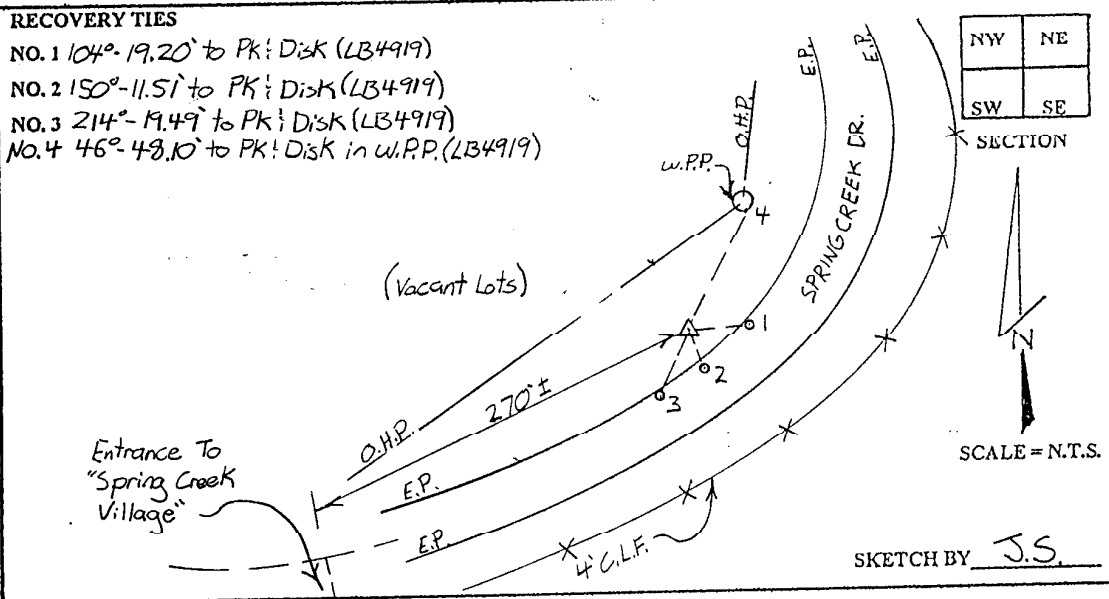 RECOVERY TIES
NO. 1 104°-19.20' to PK & Disk (LB4919)
NO. 2 150°-11.51' to PK & Disk (LB4919)
NO. 3 214°-19.49' to PK & Disk (LB4919)
NO. 4 46°-48.10' to PK & Disk in W.P.P. (LB4919)
NW NE
SW SE
SECTION
E.P.
E.P.
O.H.P.
W.P.P.
4
SPRINGCREEK DR.
(Vacant Lots)
1
2
3
270' ±
N
O.H.P.
Entrance To
"Spring Creek
Village"
E.P.
E.P.
4' C.L.F.
SCALE = N.T.S.
SKETCH BY J.S.